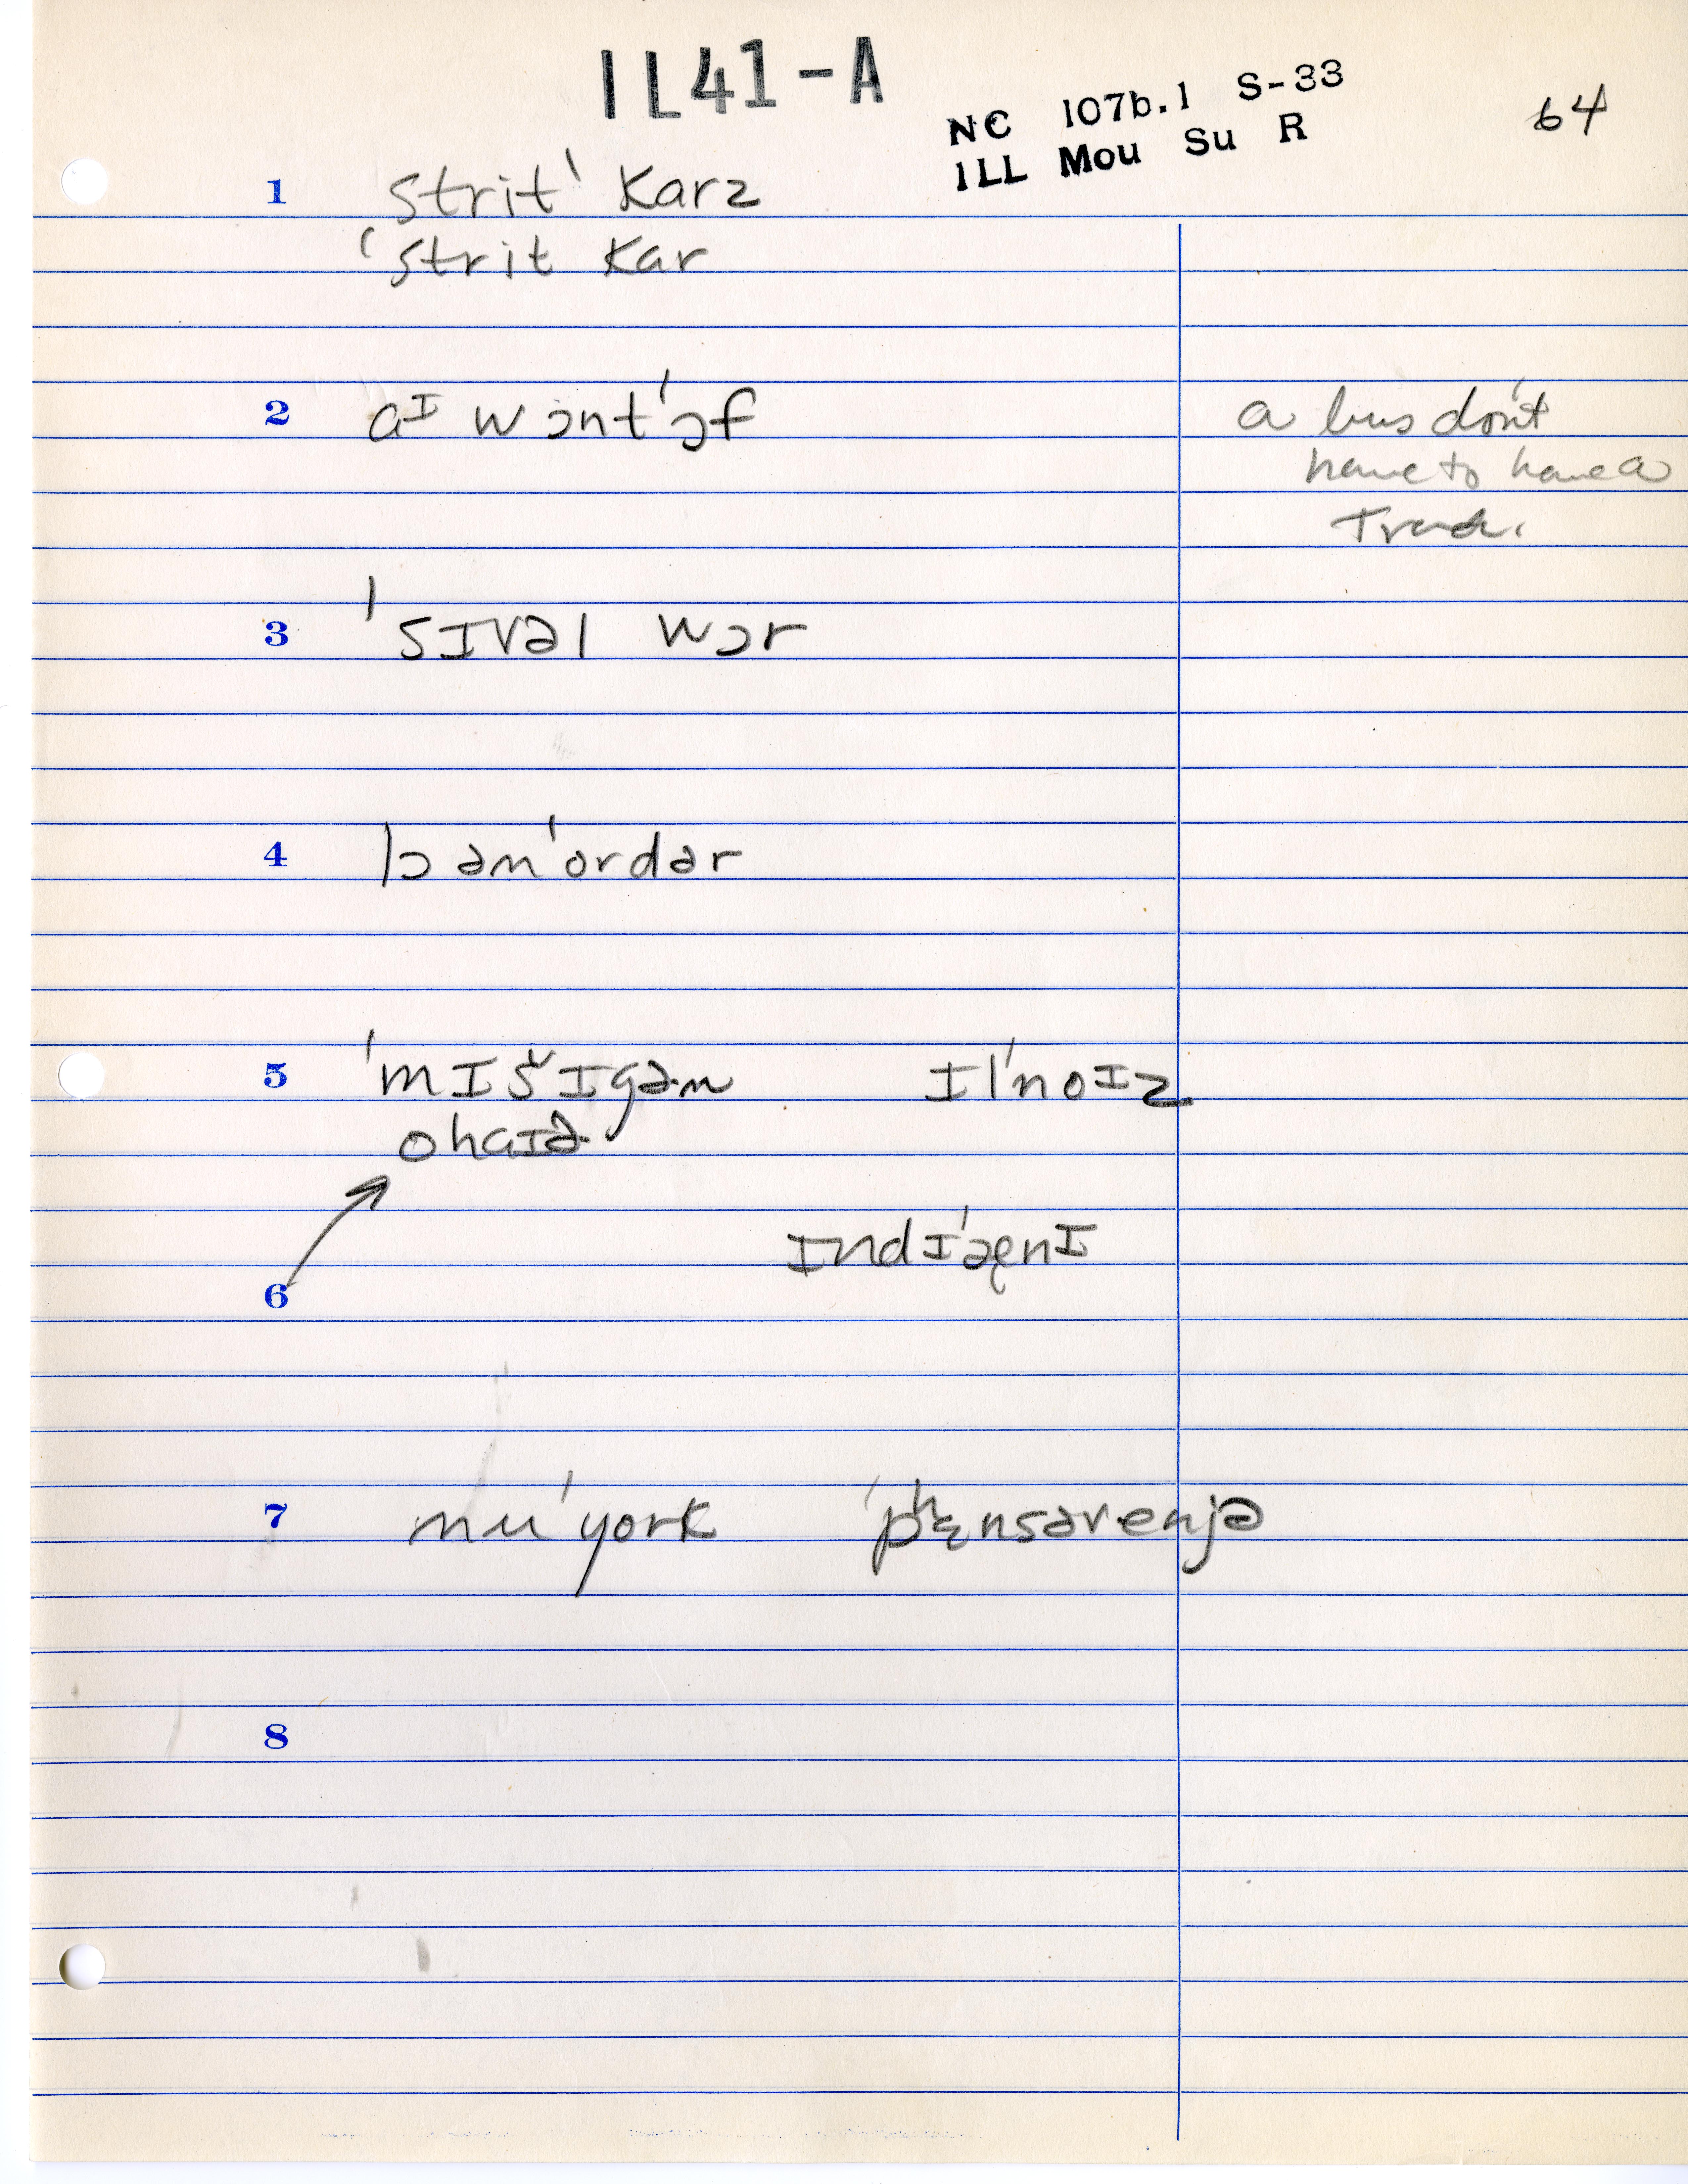 IL41-A
NC 107b.1 S-33
ILL Mou Su R
64
1 strit ˈkarz
ˈstrit kar
2 aᴵ wɔntˈɔf
a bus don't
have to have a
3 ˈsɪvəl wɔr
4 lɔ ənˈordər
5 ˈmɪšɪgən ɪlˈnoɪz
ohaɪə
ɪndɪˈæ̨nɪ
6
7 nuˈyork ˈpʰɛ̨nsəvenjə
8